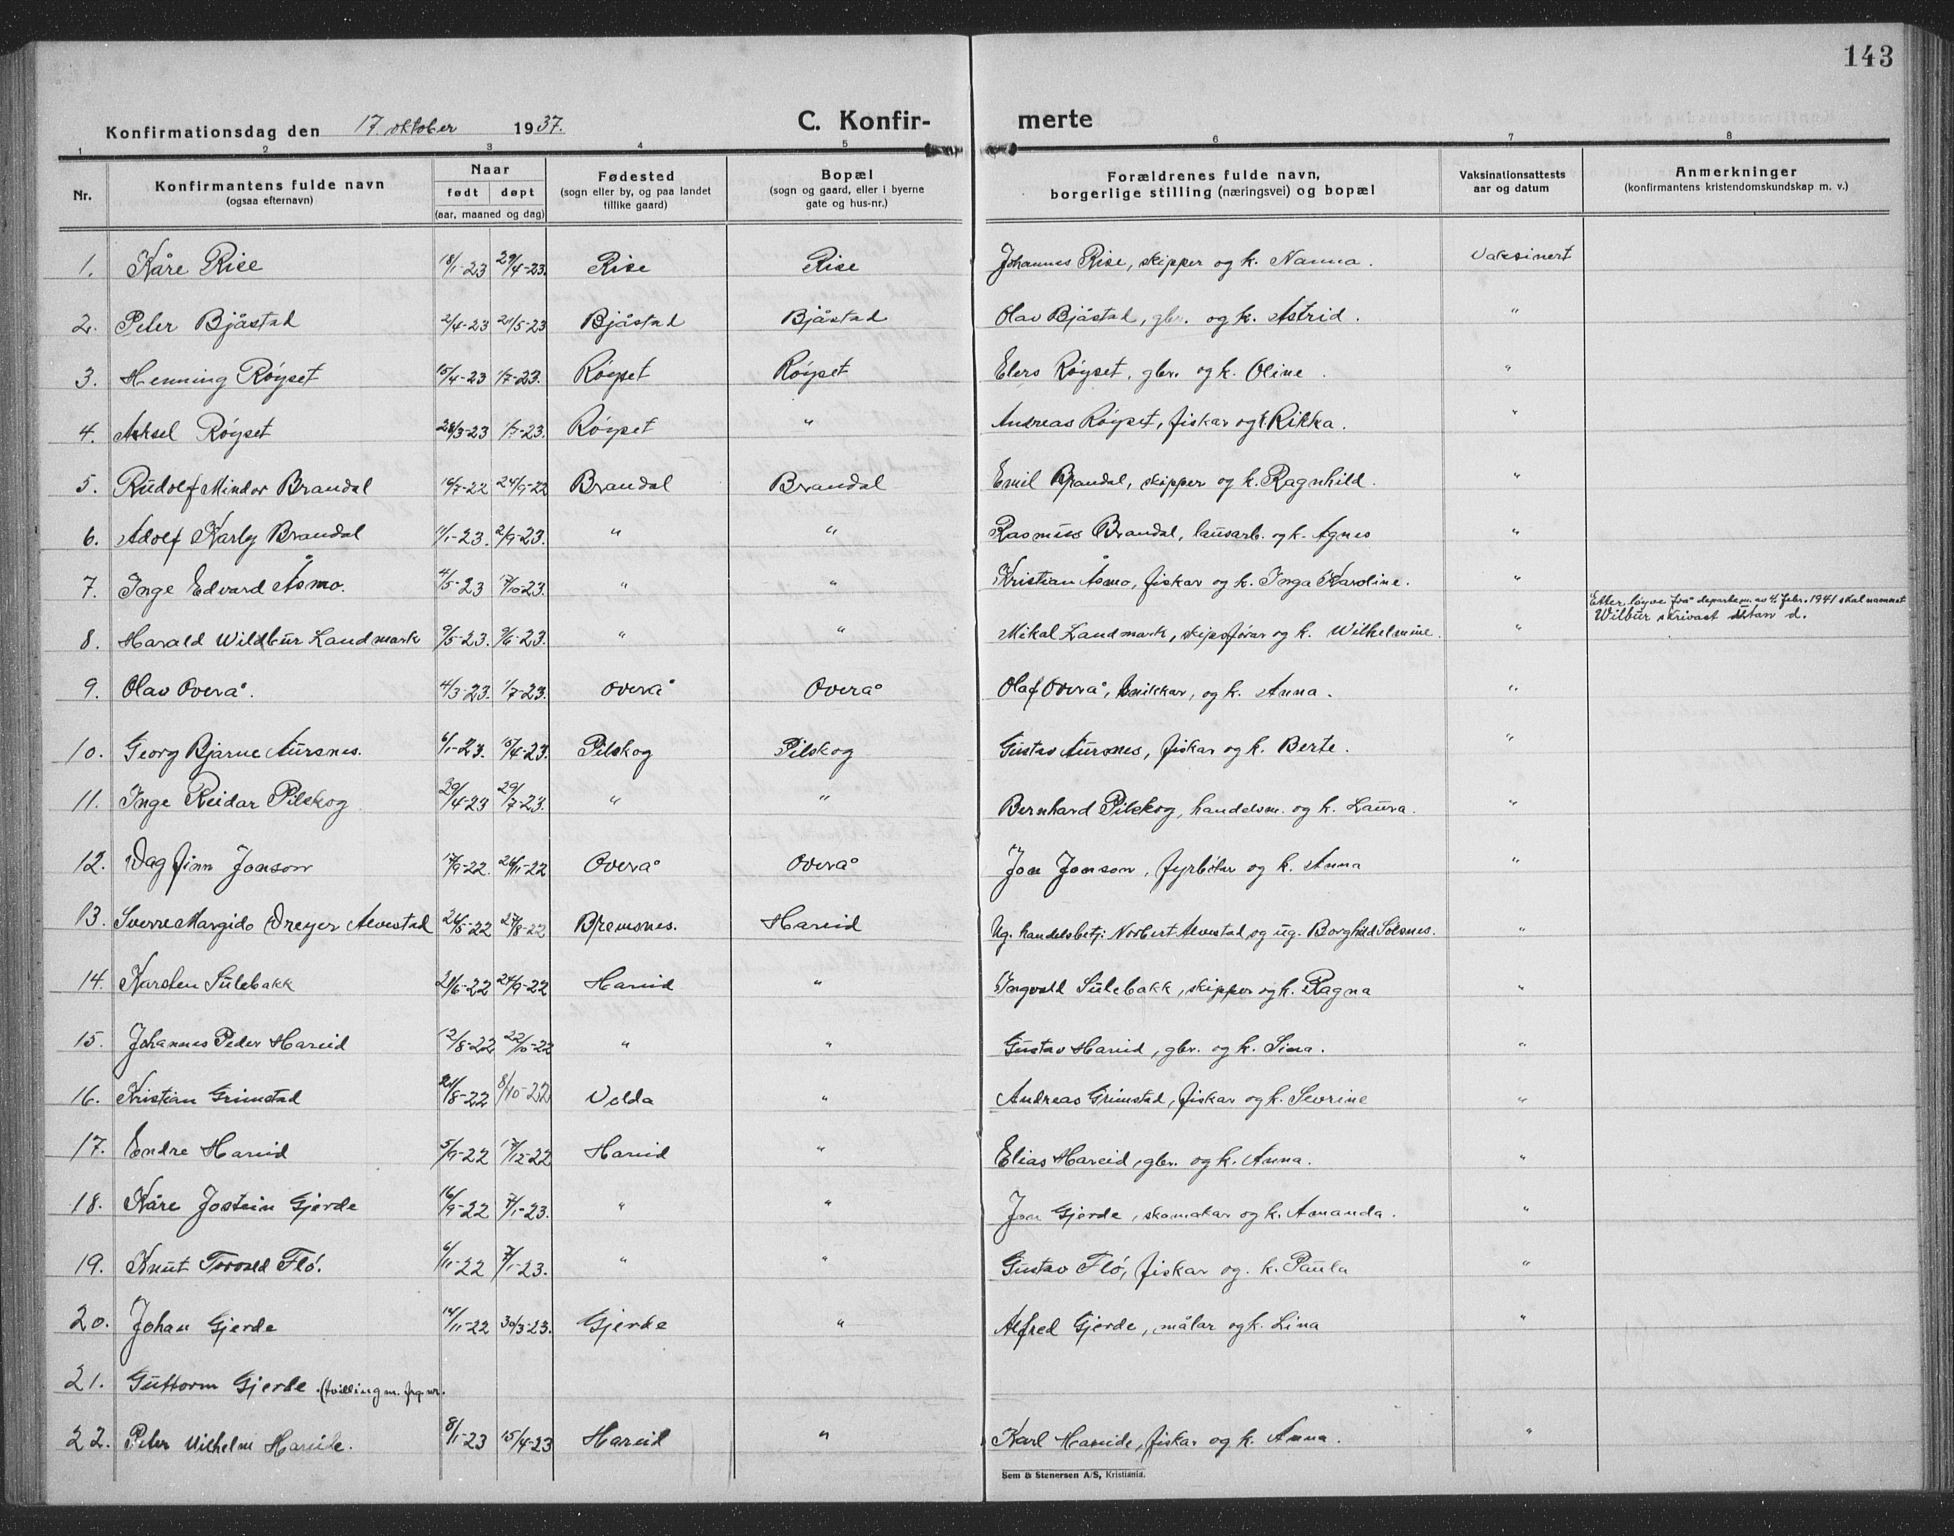 143
Konfirmationsdag den 17. oktober 1937. C. Konfir- merte
1 2 3 4 5 6 7 8
Nr. Konfirmantens fulde navn (ogsaa efternavn) Naar født døpt (aar, maaned og dag) Fødested (sogn eller by, og paa landet tillike gaard) Bopæl (sogn og gaard, eller i byerne gate og hus-nr.) Forældrenes fulde navn, borgerlige stilling (næringsvei) og bopæl Vaksinationsattests aar og datum Anmerkninger (konfirmantens kristendomskundskap m. v.)
1. Kåre Rise 18/1-23 29/4-23. Rise Rise Johannes Rise, skipper og k. Nanna. Vaksinert
2. Peter Bjåstad 2/4-23 21/5-23 Bjåstad Bjåstad Olav Bjåstad, gbr. og k. Astrid. "
3. Henning Røyset 15/4-23 1/7-23. Røyset Røyset Elers Røyset, gbr. og k. Oline. "
4. Aksel Røyset 28/3-23 1/7-23. Røyset " Andreas Røyset, fiskar og k. Rikka. "
5. Rudolf Mindor Brandal 16/7-22 24/9-22 Brandal Brandal Emil Brandal, skipper og k. Ragnhild. "
6. Adolf Karly Brandal 11/1-23. 2/9-23. " " Rasmus Brandal, lausarb. og k. Agnes "
7. Inge Edvard Åsmo. 4/5-23 17/10-23. " " Kristian Åsmo, fiskar og k. Inga Karoline. "
Etter løyve frå departem. av 4. febr. 1941 skal namnet
8. Harald Wildbur Landmark 9/5-23. 9/6-23. " " Mikal Landmark, skipsførar og k. Wilhelmine. " Wilbur skrivast utan d.
9. Olav Overå. 4/3-23. 1/7-23. Overå Overå Olaf Overå, snikkar, og k. Anna. "
10. Georg Bjarne Aursnes. 6/1-23. 15/4-23. Pilskog Pilskog Gustav Aursnes, fiskar og k. Berte. "
11. Inge Reidar Pilskog 29/4-23 29/7-23. " " Bernhard Pilskog, handelsm. og k. Laura. "
12. Dag finn Jonson 17/9-22. 26/11-22 Overå Overå Jon Jonson, fyrbøtar og k. Anna "
13. Sverre Margido Dreyer Alvestad 26/5-22 27/8-22 Bremsnes. Hareid Ug. handelsbetj. Norbert Alvestad og ug. Borghild Solsnes. "
14. Karsten Sulebakk 21/6-22 24/9-22 Hareid " Ingvald Sulebakk, skipper og k. Ragna "
15. Johannes Peder Hareid 12/8-22 22/10-22 " " Gustav Hareid, gbr. og k. Sina. "
16. Kristian Grimstad 21/8-22 8/10-22 Volda " Andreas Grimstad, fiskar og k. Sevrine "
17. Endre Hareid 5/9-22 17/12-22 Hareid " Elias Hareid, gbr. og k. Anna. "
18. Kåre Jostein Gjerde 16/9-22 7/1-23. " " Jon Gjerde, skomakar og k. Amanda. "
19. Knut Torvald Flø. 6/11-22 7/1-23. " " Gustav Flø, fiskar og. k. Paula "
20. Johan Gjerde 14/11-22 30/3-23. Gjerde " Alfred Gjerde, målar og k. Lina "
21. Guttorm Gjerde. (tvilling m. frg. nr.
22. Peter Vilhelm Hareide. 8/1-23 15/4-23 Hareid " Karl Hareide, fiskar og k. Anna. "
Sem & Stenersen A/S, Kristiania.